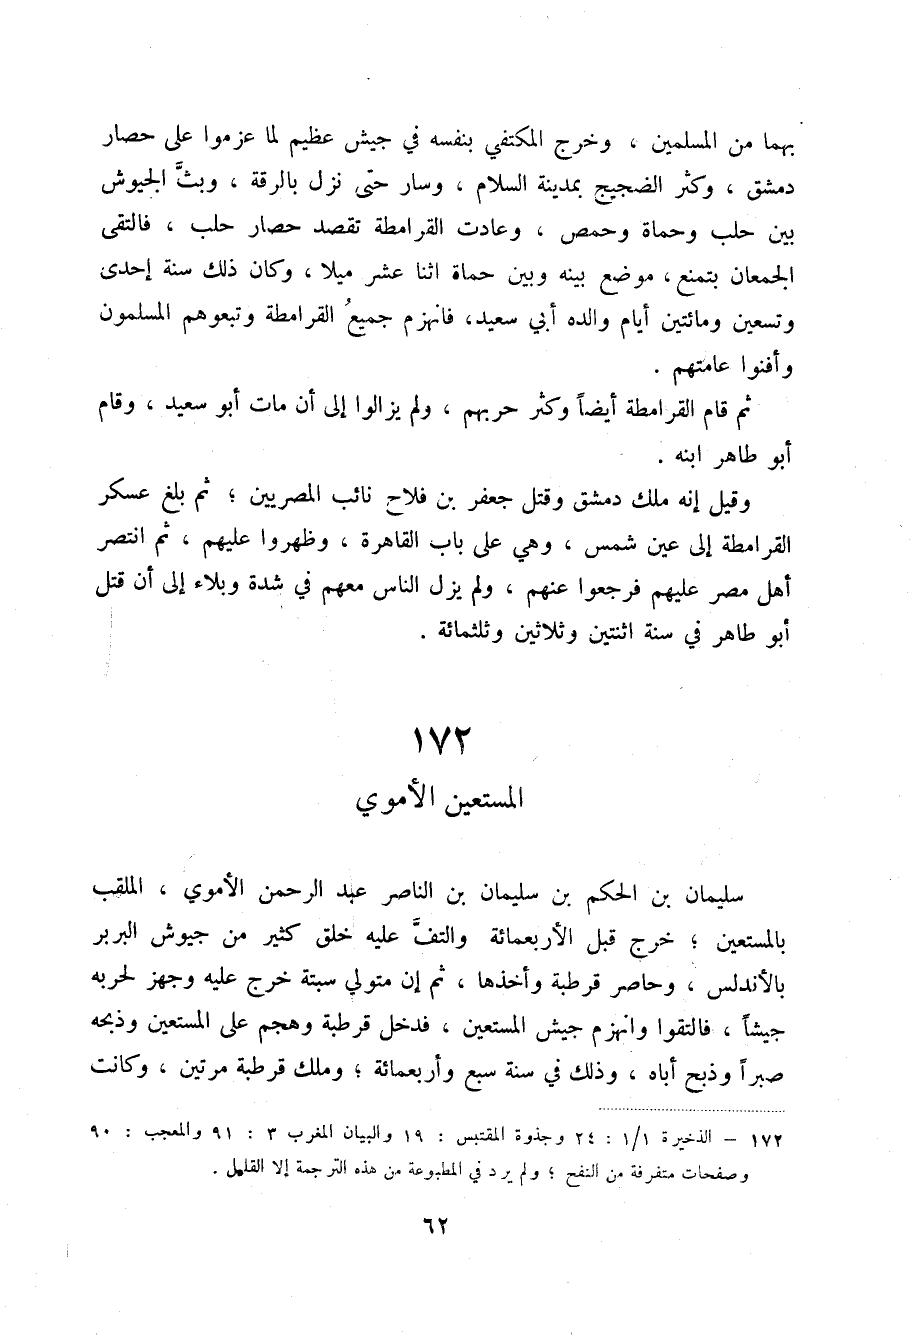 بهما من المسلمين ، وخرج المكتفي بنفسه في جيش عظيم لما عزموا على حصار
دمشق ، وكثر الضجيج بمدينة السلام ، وسار حتّى نزل بالرقة ، وبثَّ الجيوش
بين حلب وحماة وحمص ، وعادت القرامطة تقصد حصار حلب ، فالتقى
الجمعان بتمنع ، موضع بينه وبين حماة اثنا عشر ميلا ، وكان ذلك سنة إحدى
وتسعين ومائتين أيام والده أبي سعيد، فانهزم جميعُ القرامطة وتبعوهم المسلمون
وأفنوا عامتهم .
ثم قام القرامطة أيضاً وكثر حربهم ، ولم يزالوا إلى أن مات أبو سعيد ، وقام
أبو طاهر ابنه .
وقيل إنه ملك دمشق وقتل جعفر بن فلاح نائب المصريين ؛ ثم بلغ عسكر
القرامطة إلى عين شمس ، وهي على باب القاهرة ، وظهروا عليهم ، ثم انتصر
أهل مصر عليهم فرجعوا عنهم ، ولم يزل الناس معهم في شدة وبلاء إلى أن قتل
أبو طاهر في سنة اثنتين وثلاثين وثلثمائة .
١٧٢
المستعين الأموي
سليمان بن الحكم بن سليمان بن الناصر عبد الرحمن الأموي ، الملقب
بالمستعين ؛ خرج قبل الأربعمائة والتفَّ عليه خلق كثير من جيوش البربر
بالأندلس ، وحاصر قرطبة وأخذها ، ثم إن متولي سبتة خرج عليه وجهز لحربه
جيشاً ، فالتقوا وانهزم جيش المستعين ، فدخل قرطبة وهجم على المستعين وذبحه
صبراً وذبح أباه ، وذلك في سنة سبع وأربعمائة ؛ وملك قرطبة مرتين ، وكانت
١٧٢ - الذخيرة ١/١ : ٢٤ وجذوة المقتبس : ١٩ والبيان المغرب ٣ : ٩١ والمعجب : ٩٠
وصفحات متفرقة من النفح ؛ ولم يرد في المطبوعة من هذه الترجمة إلا القليل .
٦٢